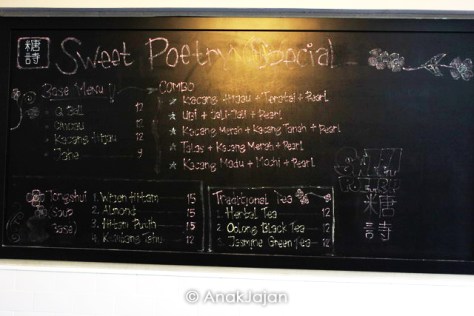 糖詩
Sweet Poetry Special
Base Menu
Q Ball 12
Cincau 12
Kacang Hijau 12
Jahe 9
COMBO
★ Kacang Hijau + Teratai + Pearl
★ Ubi + Jali-Jali + Pearl
★ Kacang Merah + Kacang Tanah + Pearl
★ Talas + Kacang Merah + Pearl
★ Kacang Madu + Mochi + Pearl
糖詩
Tongshui
Soup
Base
1. Wijen Hitam 15
2. Almond 15
3. Hitam Putih 15
4. Kembang Tahu 12
Traditional Tea
1. Herbal Tea 12
2. Oolong Black Tea 12
3. Jasmine Green Tea 12
© AnakJajan